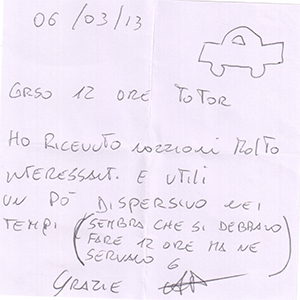 06/03/13
CORSO 12 ORE TOTOR
HO RICEVUTO NOZIONI MOLTO
INTERESSANTI E UTILI
UN PÒ DISPERSIVO NEI
TEMPI (SEMBRA CHE SI DEBBANO
FARE 12 ORE MA NE
SERVANO 6
GRAZIE